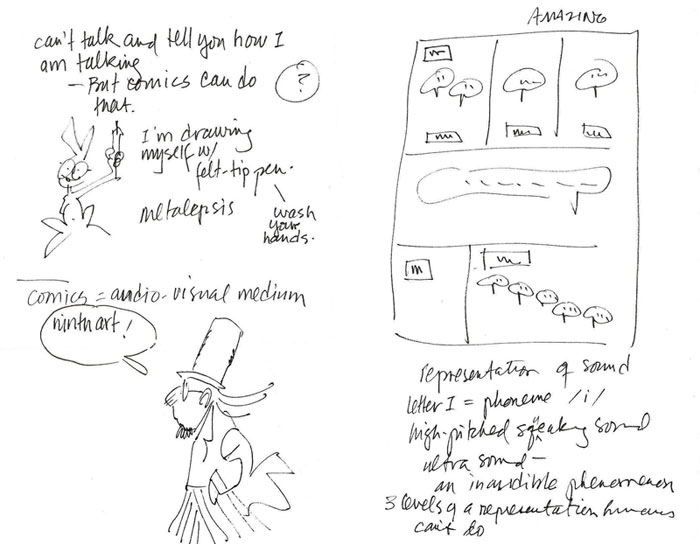 can't talk and tell you how I
am talking
— But comics can do
that.
?
I'm drawing
myself w/
felt-tip pen.
metalepsis
wash
your
hands.
comics = audio-visual medium
ninth art!
AMAZING
representation of sound
letter I = phoneme /i/
high-pitched squeaking sound
ultra sound —
an inaudible phenomenon
3 levels of a representation humans
can't do